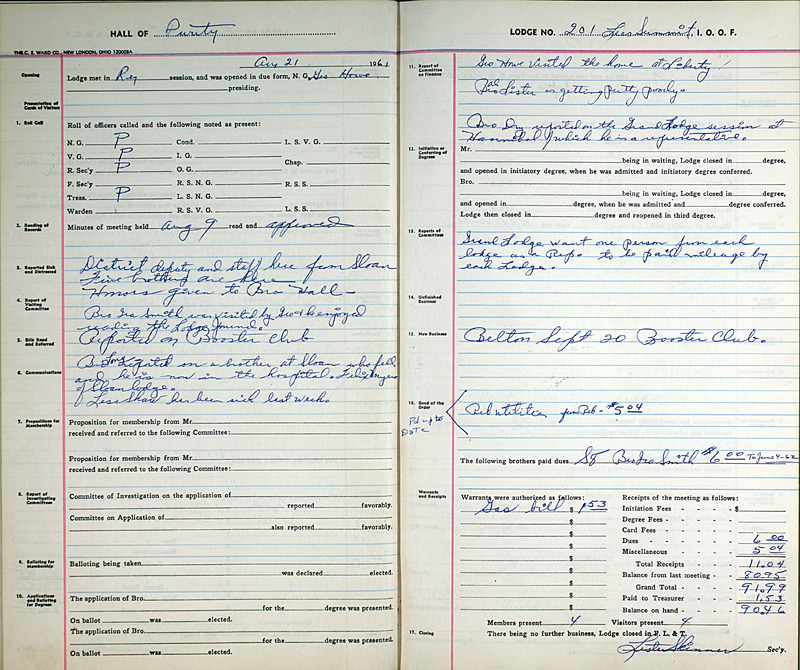 HALL OF Purity
THE C. E. WARD CO., NEW LONDON, OHIO 12000BA
Aug 21 1961
Opening
Lodge met in Reg session, and was opened in due form, N. G. Geo Howe
presiding.
Presentation of Cards of Visitors
1. Roll Call
Roll of officers called and the following noted as present:
N. G. P Cond. L. S. V. G.
V. G. P I. G. Chap.
R. Sec'y P O. G.
F. Sec'y R. S. N. G. R. S. S.
Treas. P L. S. N. G.
Warden R. S. V. G. L. S. S.
2. Reading of Records
Minutes of meeting held Aug 9 read and approved
3. Reported Sick and Distressed
District deputy and staff here from Sloan
Five brothers are here
Honors given to Bro Hall -
4. Report of Visiting Committee
Bro Ira Smith was visited by Geo & he enjoyed
reading the Lodge Journal.
5. Bills Read and Referred
Reported on Booster Club
6. Communications
reported on a brother at Sloan who fell
and he is now in the hospital.
of Sloan lodge.
Les Shaw has been sick last week.
7. Propositions for Membership
Proposition for membership from Mr.
received and referred to the following Committee:
Proposition for membership from Mr.
received and referred to the following Committee:
8. Report of Investigating Committees
Committee of Investigation on the application of
reported favorably.
Committee on Application of
also reported favorably.
9. Balloting for Membership
Balloting being taken
was declared elected.
10. Applications and Balloting for Degrees
The application of Bro.
for the degree was presented.
On ballot was elected.
The application of Bro.
for the degree was presented.
On ballot was elected.
LODGE NO. 201 Lees Summit, I. O. O. F.
11. Report of Committee on Finance
Geo Howe visited the home at Liberty!
Bro Lister is getting putty poorly.
Bro Dry reported on the Grand Lodge session at
Hannibal which he is a representative.
12. Initiation or Conferring of Degrees
Mr.
being in waiting, Lodge closed in degree,
and opened in initiatory degree, when he was admitted and initiatory degree conferred.
Bro.
being in waiting, Lodge closed in degree,
and opened in degree, when he was admitted and degree conferred.
Lodge then closed in degree and reopened in third degree.
13. Reports of Committees
Grand Lodge want one person from each
lodge as a Rep. to be paid mileage by
each Lodge.
14. Unfinished Business
15. New Business
Belton Sept 20 Booster Club.
16. Good of the Order
Pd up to Date
from Reb. $5.04
The following brothers paid dues Bro Ira Smith $6.00 To June 9-62
Warrants and Receipts
Warrants were authorized as follows:
Gas bill $ 1.53
$
$
$
$
$
$
$
Receipts of the meeting as follows:
Initiation Fees - $
Degree Fees -
Card Fees -
Dues - 6 00
Miscellaneous - 5 04
Total Receipts - 11.04
Balance from last meeting - 80.95
Grand Total - 91.99
Paid to Treasurer - 1.53
Balance on hand - 90.46
Members present 4 Visitors present 4
17. Closing
There being no further business, Lodge closed in F. L. & T.
Lester Skinner Sec'y.